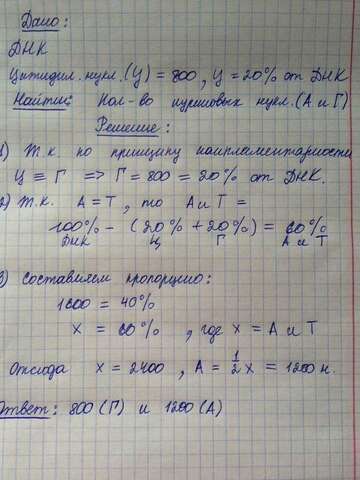 Дано:
ДНК
Цитидил. нукл. (Ц) = 800, Ц = 20% от ДНК
Найти: Кол-во пуриновых нукл. (А и Г)
Решение:
1) Т.к. по принципу комплементарности
Ц ≡ Г => Г = 800 = 20% от ДНК.
2) Т.к. А = Т, то А и Т =
100% - (20% + 20%) = 60%
ДНК Ц Г А и Т
3) составляем пропорцию:
1600 = 40%
х = 60%, где х = А и Т
Отсюда х = 2400, А = 1/2 х = 1200 н.
Ответ: 800 (Г) и 1200 (А)